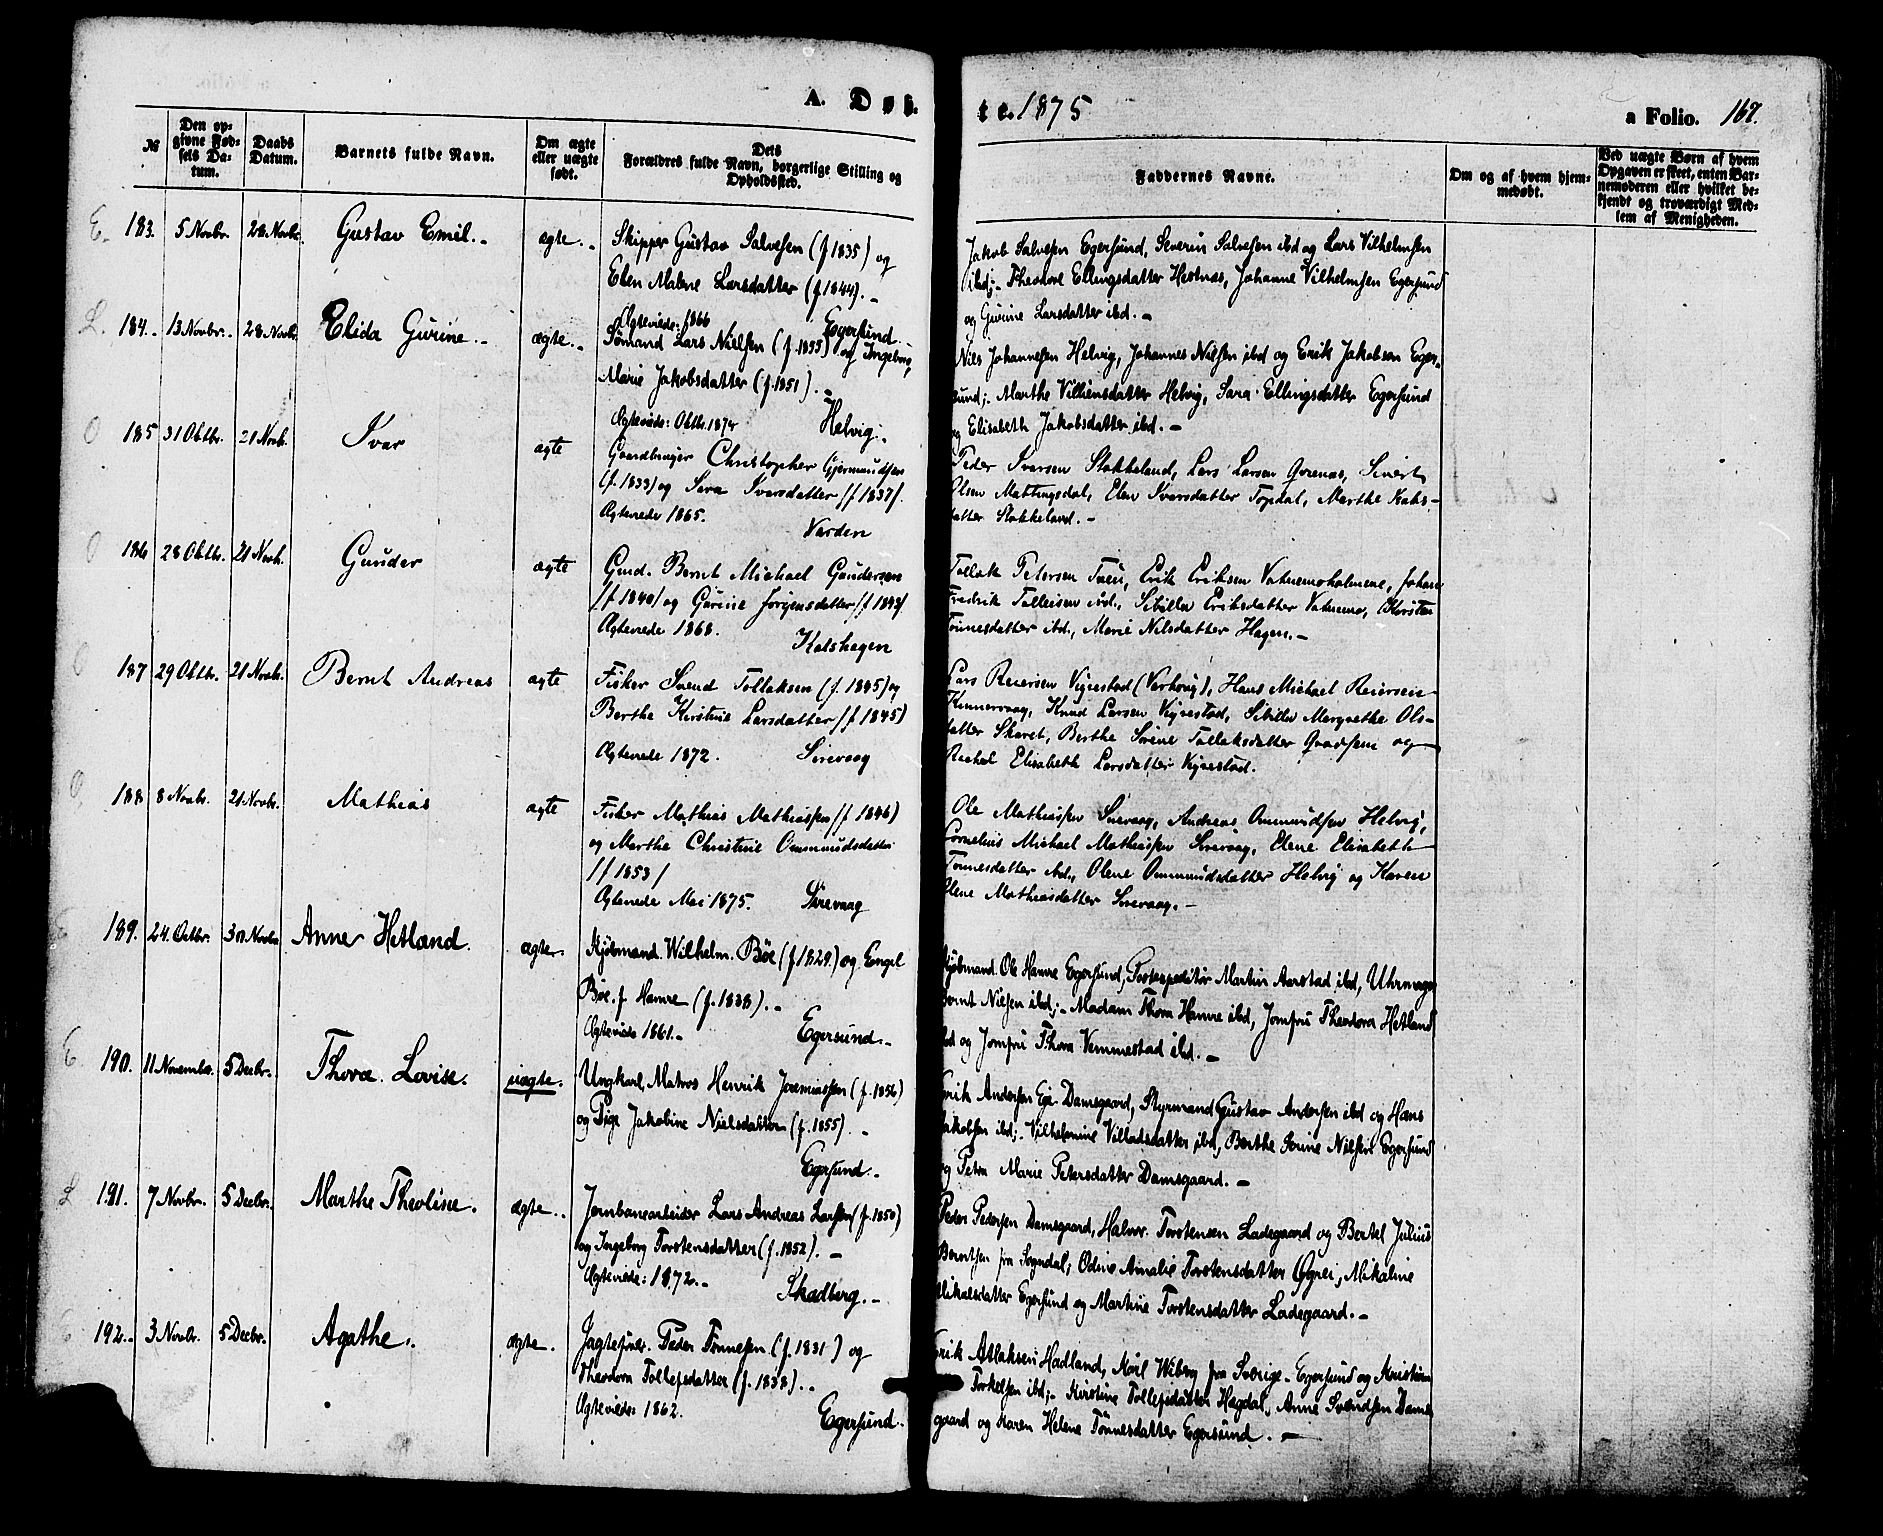 A. Døb-
te. 1875
a Folio. 167.
№
Den op-
givne Fød-
sels Da-
tum.
Daabs
Datum.
Barnets fulde Navn.
Om ægte
eller uægte
født.
Dets
Forældres fulde Navn, borgerlige Stilling og
Opholdssted.
Faddernes Navne.
Om og af hvem hjem-
medøbt.
Ved uægte Børn af hvem
Opgaven er skeet, enten Bar-
nemoderen eller hvilket be-
kjendt og troværdigt Med-
lem af Menigheden.
E. 183. 5 Novbr. 28 Novbr. Gustav Emil. ægte.
Skipper Gustav Salvesen (f 1835) og
Elen Malene Larsdatter (f. 1844).
Ægteviede: 1866 Egersund.
Jakob Salvesen Egersund, Severin Salvesen ibd og Lars Vilhelmsen
ibd;- Theodore Ellingsdatter Hestnæs, Johanne Vilhelmsen Egersund
og Gurine Larsdatter ibd.-
L. 184. 13 Novbr. 28 Novbr. Elida Gurine. ægte.
Sømand Lars Nielsen (f. 1855) og Ingeborg
Marie Jakobsdatter (f. 1851).
Ægteviede: Oktbr. 1874 Helvig.
Niels Johannesen Helvig, Johannes Nilsen ibd og Erik Jakobsen Eger-
sund;- Marthe Villumsdatter Helvig, Sara Ellingsdatter Egersund
og Elisabeth Jakobsdatter ibd.-
O 185 31 Oktbr. 21 Novb. Ivar ægte
Gaardbruger Christopher Gjermundsen
(f. 1833) og Sara Ivarsdatter (f 1837).
Ægteviede 1865. Varden
Peder Iversen Stokkeland, Lars Larsen, Sivert
Olsen Mattingsdal, Elen Ivarsdatter Topdal, Marthe
datter Stokkeland.-
O 186 28 Oktbr. 21 Novb. Gunder ægte
Grd. Bernt Michael Gundersen
(f 1840) og Gurine Jørgensdatter (f 1842)
Ægteviede 1868. Kalshagen
Tollak Petersen Tuen, Erik Eriksen Vatnemoholmene, Johan
Fredrik Tolleisen ibd., Sibille Eriksdatter Vatnemo, Kirsten
Tønnesdatter ibd., Marie Nilsdatter Hagen.-
O 187 29 Oktbr. 21 Novb. Bernt Andreas ægte
Fisker Svend Tollaksen (f. 1845) og
Berthe Kirstine Larsdatter (f 1845)
Ægteviede 1872. Sirevaag
Lars Reiersen Vigrestad (Varhoug), Hans Michael Reiersen
Kinnervaag, Knud Larsen Vigrestad, Sibille Margrethe Ols-
datter Skaret, Berthe Serine Tollaksdatter Quadsem og
Rachel Elisabeth Larsdatter Vigrestad.
O. 188 8 Novbr. 21 Novbr. Mathias ægte
Fisker Mathias Mathiassen (f 1846)
og Marthe Christine Ommundsdatter
(f 1853)
Ægteviede Mai 1875. Sirevaag
Ole Mathiassen Sirevaag, Andreas Ommundsen Helvig,
Cornelius Michael Mathiassen Sirevaag, Elene Elisabeth
Tønnesdatter ibd., Olene Ommundsdatter Helvig og Karen
Olene Mathiasdatter Sirevaag.-
E 189. 24. Octbr. 30 Novbr. Anne Hetland. ægte.
Kjøbmand Wilhelm Bøe (f 1829.) og Engel
Bøe, f. Hamre (f. 1838).
Ægteviede 1861.- Egersund.-
Kjøbmand Ole Hamre Egersund, Postexpeditør Martin Aarstad ibd, Uhrmager
Bernt Nilsen ibd;- Madam Thora Hamre ibd, Jomfru Theodora Hetland
ibd og Jomfru Thora Vemmestad ibd.-
E 190. 11 Novembr. 5 Decbr. Thora Lovise. uægte.
Ungkarl, Matros Henrik Jeremiassen (f. 1856)
og Pige Jakobine Nielsdatter (f. 1855).-
Egersund.
Erik Andersen Eie-Damsgaard, Styrmand Gustav Andersen ibd og Hans
Jakobsen ibd;- Vilhelmine Villadsdatter ibd, Berthe Serine Nilsen Egersund
og Petra Marie Petersdatter Damsgaard.-
L 191. 7 Novbr. 5 Decbr. Marthe Theoline. ægte.
Jernbanearbeider Lars Andreas Larsen (f. 1850)
og Ingeborg Torstensdatter (f. 1852).-
Ægteviede: 1872.- Skadberg.-
Peder Pedersen Damsgaard, Halvor Torstensen Ladegaard og Bertel Julius
Berntsen fra Sogndal; Odine Amalie Torstensdatter Øgrei, Mikaline
Mikalsdatter Egersund og Martine Torstensdatter Ladegaard.-
E 192. 3 Novbr. 5 Decbr. Agathe. ægte.
Jagtefører Peder Tønnesen (f. 1831) og
Theodora Tollefsdatter (f. 1838).
Ægteviede 1862. Egersund.
Erik Atlaksen Hadland, Karl Wiberg fra Sverige-Egersund og Kristian
Torkelsen ibd;- Kirstine Tollefsdatter Hægdal, Anne Svendsen Dams-
gaard og Karen Helene Tønnesdatter Egersund.-